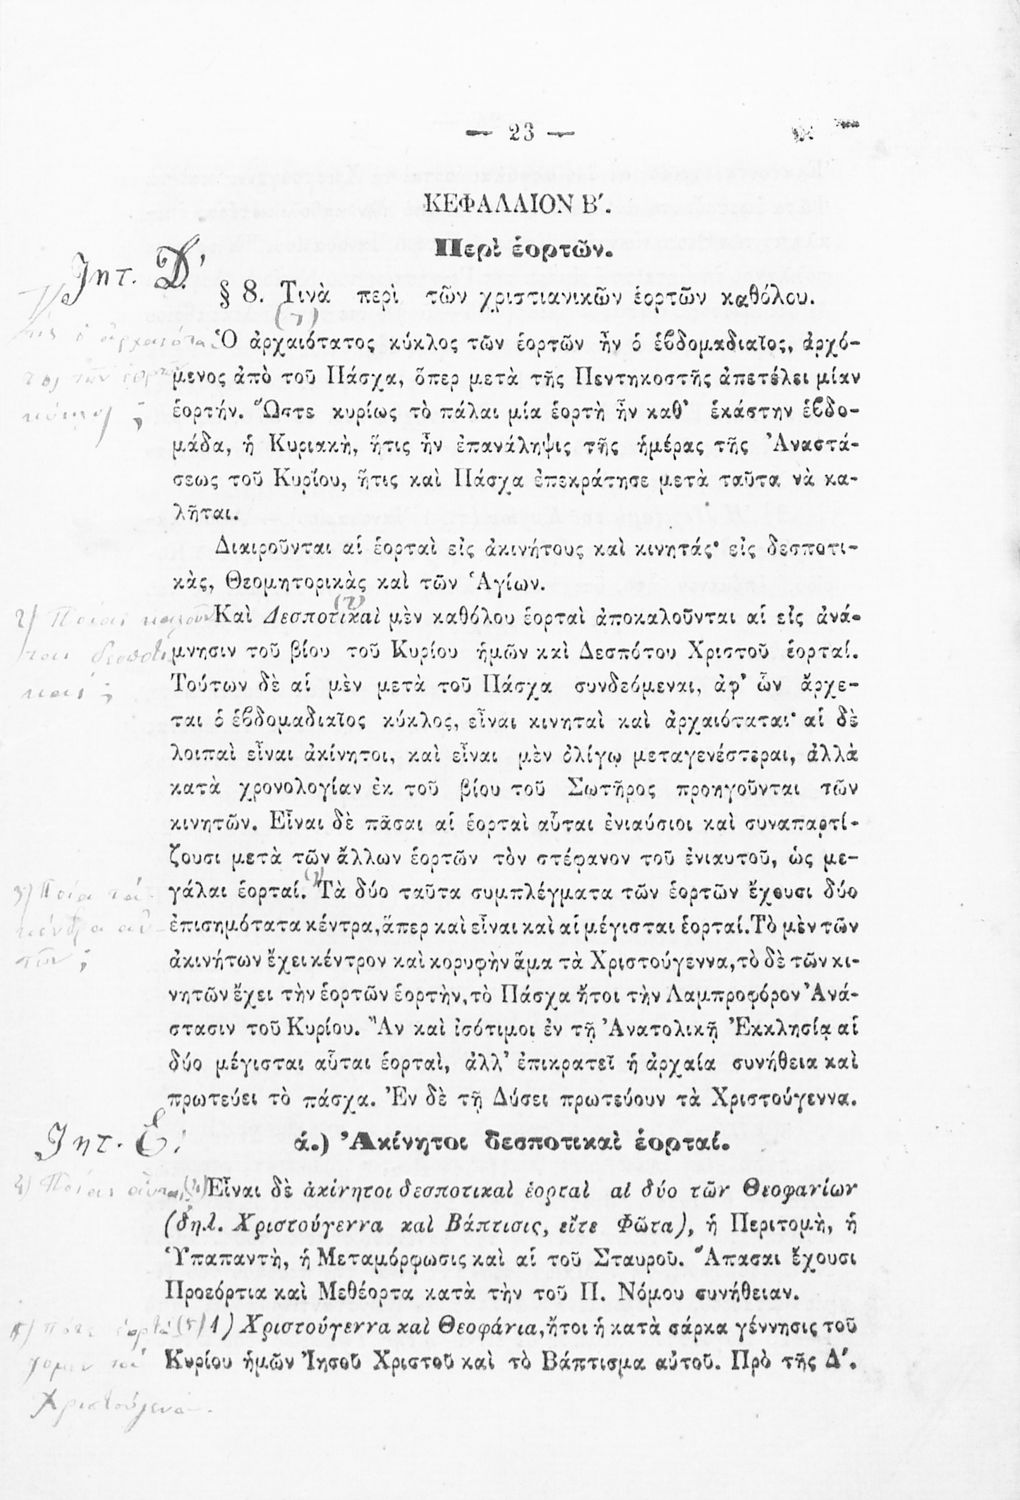 — 23 —
ΚΕΦΑΛΑΙΟΝ Β΄.
Περὶ ἑορτῶν.
Ζητ. Δ΄
§ 8. Τινὰ περὶ τῶν χριστιανικῶν ἑορτῶν καθόλου.
1) ὁ ἀρχαιότα-
τος τῶν ἑορτῶν
κύκλος ;
(1)
Ὁ ἀρχαιότατος κύκλος τῶν ἑορτῶν ἦν ὁ ἑβδομαδιαῖος, ἀρχό-
μενος ἀπὸ τοῦ Πάσχα, ὅπερ μετὰ τῆς Πεντηκοστῆς ἀπετέλει μίαν
ἑορτήν. Ὥστε κυρίως τὸ πάλαι μία ἑορτὴ ἦν καθ᾽ ἑκάστην ἑβδο-
μάδα, ἡ Κυριακὴ, ἥτις ἦν ἐπανάληψις τῆς ἡμέρας τῆς Ἀναστά-
σεως τοῦ Κυρίου, ἥτις καὶ Πάσχα ἐπεκράτησε μετὰ ταῦτα νὰ κα-
λῆται.
Διαιροῦνται αἱ ἑορταὶ εἰς ἀκινήτους καὶ κινητάς· εἰς δεσποτι-
κὰς, Θεομητορικὰς καὶ τῶν Ἁγίων.
2) Ποῖαι καλοῦν
ται δεσποτι
καί ;
(2)
Καὶ Δεσποτικαὶ μὲν καθόλου ἑορταὶ ἀποκαλοῦνται αἱ εἰς ἀνά-
μνησιν τοῦ βίου τοῦ Κυρίου ἡμῶν καὶ Δεσπότου Χριστοῦ ἑορταί.
Τούτων δὲ αἱ μὲν μετὰ τοῦ Πάσχα συνδεόμεναι, ἀφ᾽ ὧν ἄρχε-
ται ὁ ἑβδομαδιαῖος κύκλος, εἶναι κινηταὶ καὶ ἀρχαιόταται· αἱ δὲ
λοιπαὶ εἶναι ἀκίνητοι, καὶ εἶναι μὲν ὀλίγῳ μεταγενέστεραι, ἀλλὰ
κατὰ χρονολογίαν ἐκ τοῦ βίου τοῦ Σωτῆρος προηγοῦνται τῶν
κινητῶν. Εἶναι δὲ πᾶσαι αἱ ἑορταὶ αὗται ἐνιαύσιοι καὶ συναπαρτί-
ζουσι μετὰ τῶν ἄλλων ἑορτῶν τὸν στέφανον τοῦ ἐνιαυτοῦ, ὡς με-
3) Ποῖα τὰ
κέντρα αὐ-
τῶν ;
(3)
γάλαι ἑορταί. Τὰ δύο ταῦτα συμπλέγματα τῶν ἑορτῶν ἔχουσι δύο
ἐπισημότατα κέντρα, ἅπερ καὶ εἶναι καὶ αἱ μέγισται ἑορταί. Τὸ μὲν τῶν
ἀκινήτων ἔχει κέντρον καὶ κορυφὴν ἅμα τὰ Χριστούγεννα, τὸ δὲ τῶν κι-
νητῶν ἔχει τὴν ἑορτῶν ἑορτὴν, τὸ Πάσχα ἤτοι τὴν Λαμπροφόρον Ἀνά-
στασιν τοῦ Κυρίου. Ἂν καὶ ἰσότιμοι ἐν τῇ Ἀνατολικῇ Ἐκκλησίᾳ αἱ
δύο μέγισται αὗται ἑορταὶ, ἀλλ᾽ ἐπικρατεῖ ἡ ἀρχαία συνήθεια καὶ
πρωτεύει τὸ πάσχα. Ἐν δὲ τῇ Δύσει πρωτεύουν τὰ Χριστούγεννα.
Ζητ. Ε΄
ά.) Ἀκίνητοι δεσποτικαὶ ἑορταί.
4) Ποῖαι αὗται
(4)
Εἶναι δὲ ἀκίνητοι δεσποτικαὶ ἑορταὶ αἱ δύο τῶν Θεοφανίων
(δηλ. Χριστούγεννα καὶ Βάπτισις, εἴτε Φῶτα), ἡ Περιτομὴ, ἡ
Ὑπαπαντὴ, ἡ Μεταμόρφωσις καὶ αἱ τοῦ Σταυροῦ. Ἅπασαι ἔχουσι
Προεόρτια καὶ Μεθέορτα κατὰ τὴν τοῦ Π. Νόμου συνήθειαν.
5) πότε ἑορτά
ζομεν τὰ
Χριστούγενα
(5)
1) Χριστούγεννα καὶ Θεοφάνια, ἤτοι ἡ κατὰ σάρκα γέννησις τοῦ
Κυρίου ἡμῶν Ἰησοῦ Χριστοῦ καὶ τὸ Βάπτισμα αὐτοῦ. Πρὸ τῆς Δ΄.